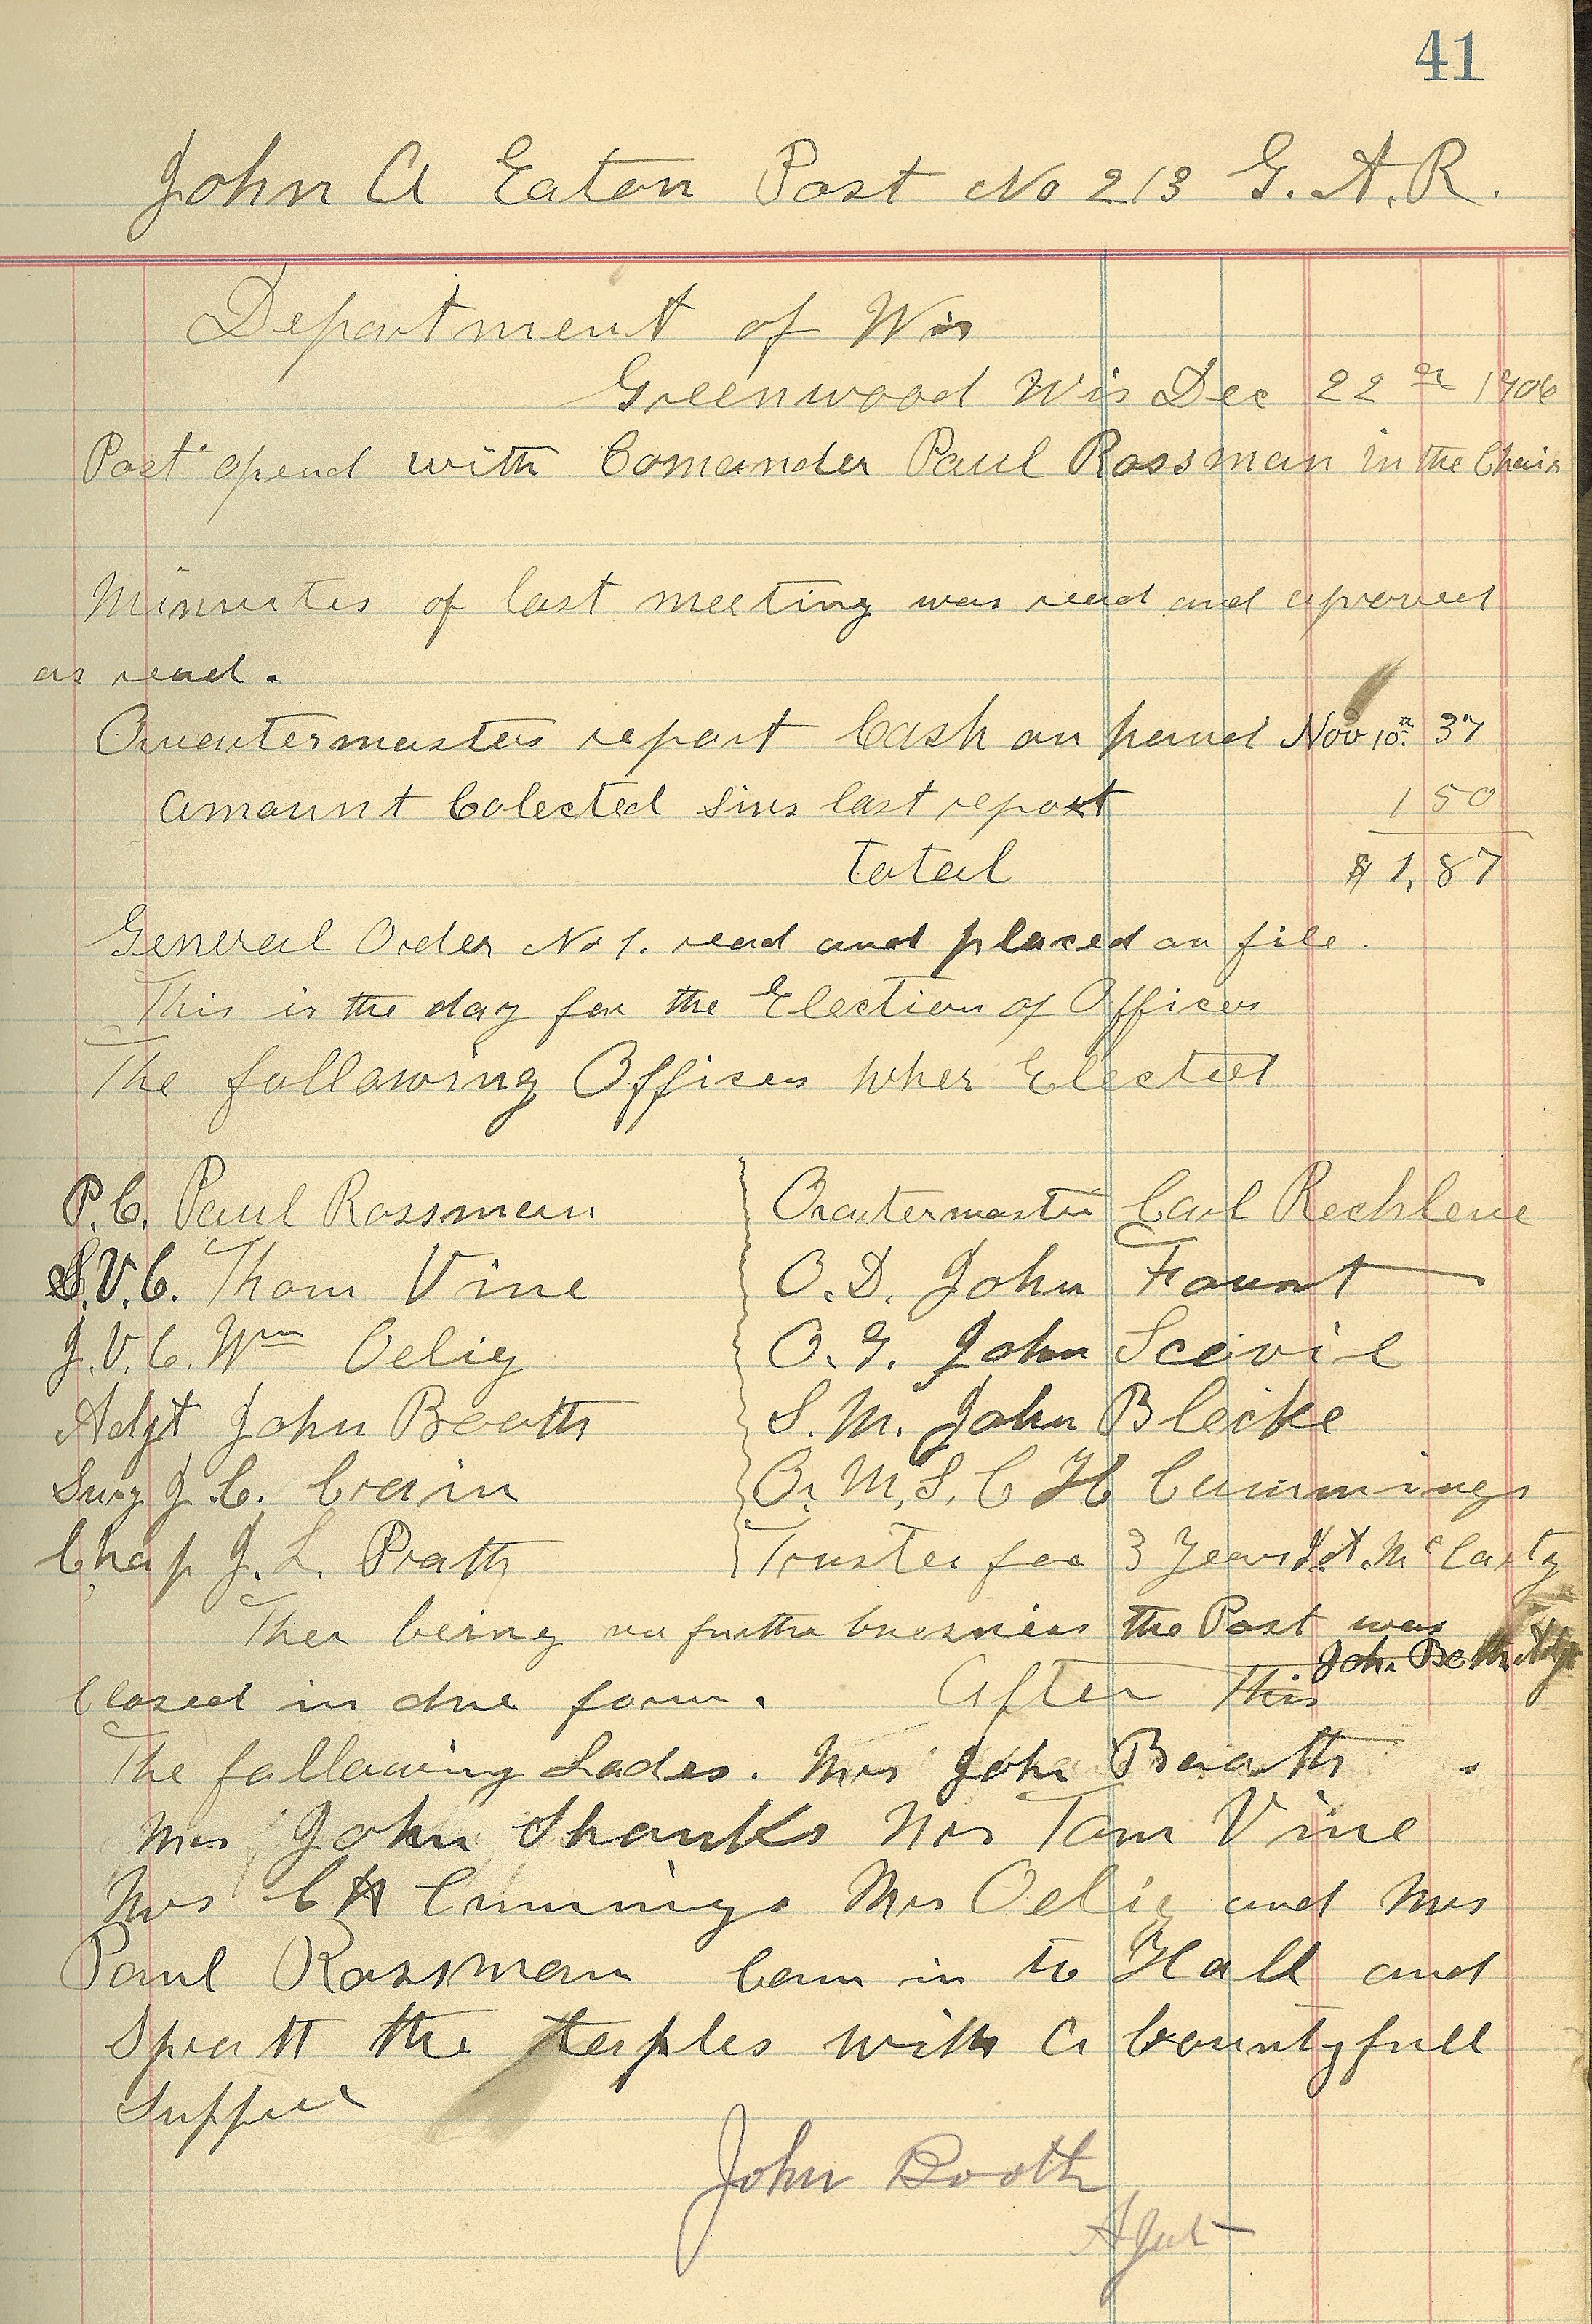 41
John A Eaton Post No 213 G. A. R.
Department of Wis
Greenwood Wis Dec 22 1906
Post opend with Comander Paul Rossman in the Chair
Minnutes of last meeting was read and aproved
as read.
Quautermasters report Cash on hand Nov 10. 37
amount Colected sins last report 1 50
total $ 1,87
General Order No 1. read and placed on file.
This is the day for the Election of Offices
The following Offices wher Elected
P.C. Paul Rossman Quatermaster Carl Rechlene
S.V.C. Thom Vine O.D. John Fount
J.V.C. Wm Oelig O.G. John Scovil
Adjt John Booth S.M. John Blecke
Surg J.C. Crain Q.M.S. C H Cummings
Chap J.L. Pratt Trustee for 3 Years McCarty
Ther being no further buesness the Post was
John Booth Adjt
Closed in due form. After This
The following Lades. Mrs John Booth
Mrs John Shanks Mrs Tom Vine
Mrs C H Cummings Mrs Oelig and Mrs
Paul Rossman Cam in to Hall and
Spratt the tephes with a bountyfull
Supper
John Booth
Ajut